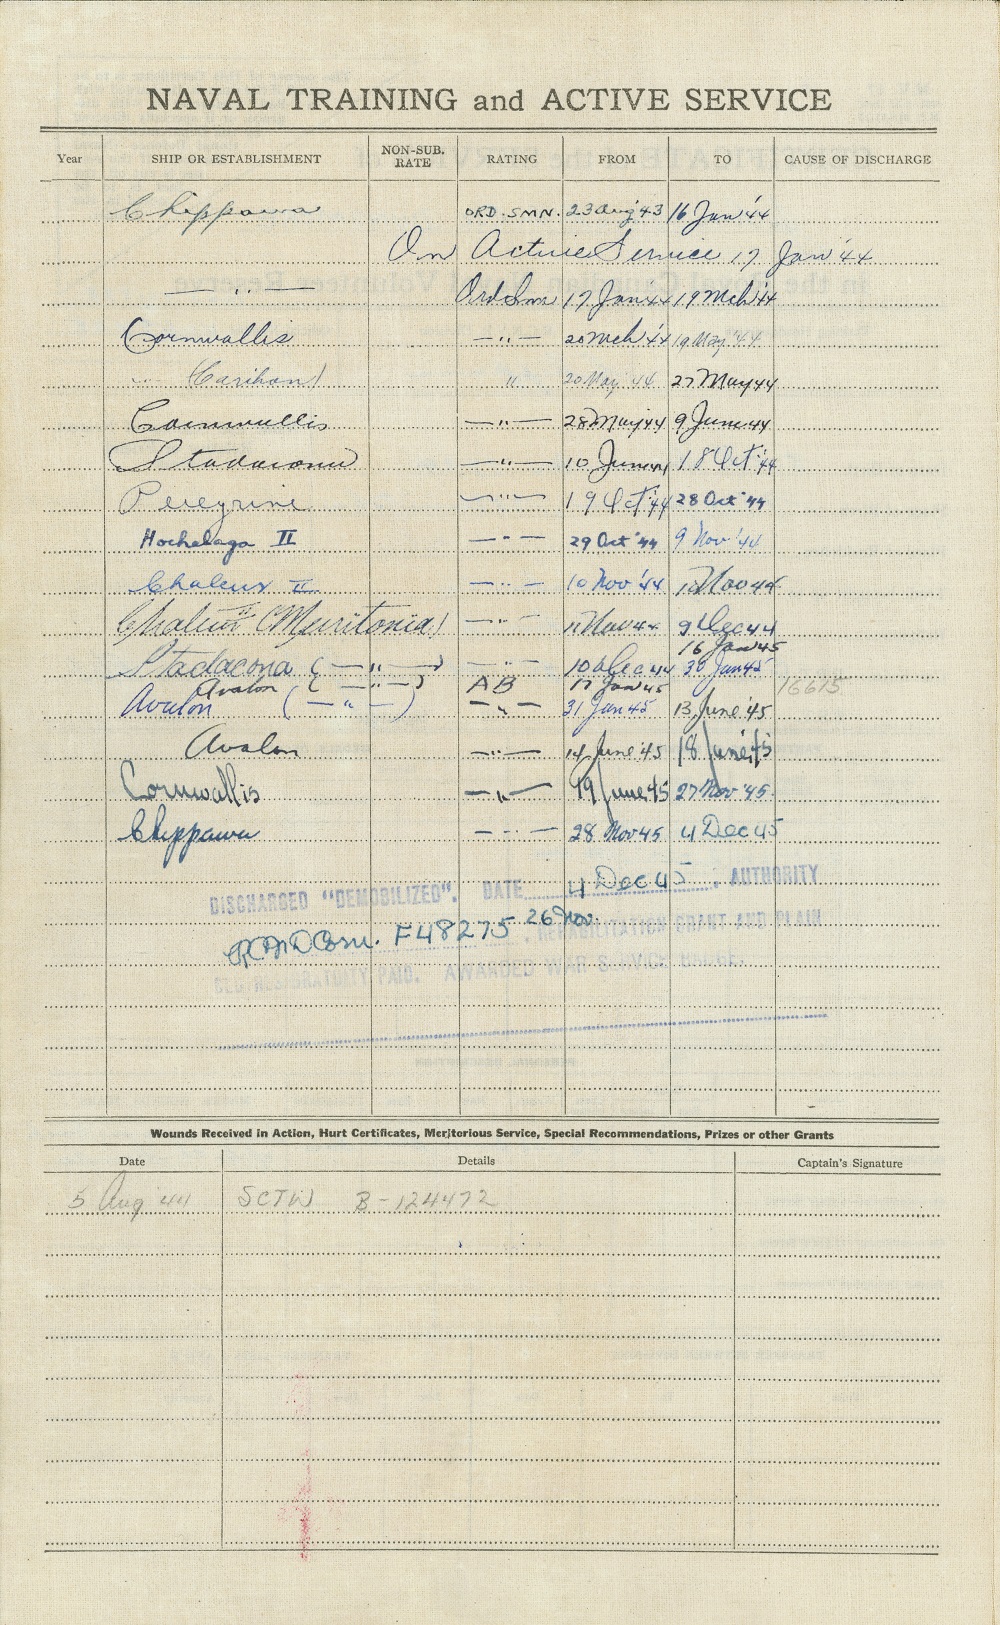 NAVAL TRAINING and ACTIVE SERVICE
Year SHIP OR ESTABLISHMENT NON-SUB. RATE RATING FROM TO CAUSE OF DISCHARGE
Chippawa ORD. SMN. 23 Aug '43 16 Jan '44
On Active Service 17 Jan '44
— " — Ord Smn 17 Jan 44 19 Mch '44
Cornwallis — " — 20 Mch '44 19 May '44
" 20 May '44 27 May 44
Cornwallis — " — 28 May 44 9 June 44
Stadacona — " — 10 June 44 18 Oct '44
Peregrine — " — 19 Oct '44 28 Oct '44
Hochelaga II — " — 29 Oct '44 9 Nov '44
Chaleur II — " — 10 Nov '44 10 Nov 44
Chaleur II (Merritonia) — " — 11 Nov 44 9 Dec 44
16 Jan 45
Stadacona ( — " — ) — " — 10 Dec 44 30 Jan 45
Avalon ( — " — ) AB 17 Jan 45 16615
Avalon ( — " — ) — " — 31 Jan 45 13 June '45
Avalon — " — 14 June '45 18 June '45
Cornwallis — " — 19 June 45 27 Nov '45
Chippawa — " — 28 Nov 45 4 Dec 45
DISCHARGED "DEMOBILIZED". DATE 4 Dec 45. AUTHORITY
F48275 26 Nov. REHABILITATION GRANT AND PLAIN
CLOTHES GRATUITY PAID. AWARDED WAR SERVICE BADGE.
Wounds Received in Action, Hurt Certificates, Meritorious Service, Special Recommendations, Prizes or other Grants
Date Details Captain's Signature
5 Aug 44 SCTW B-124472